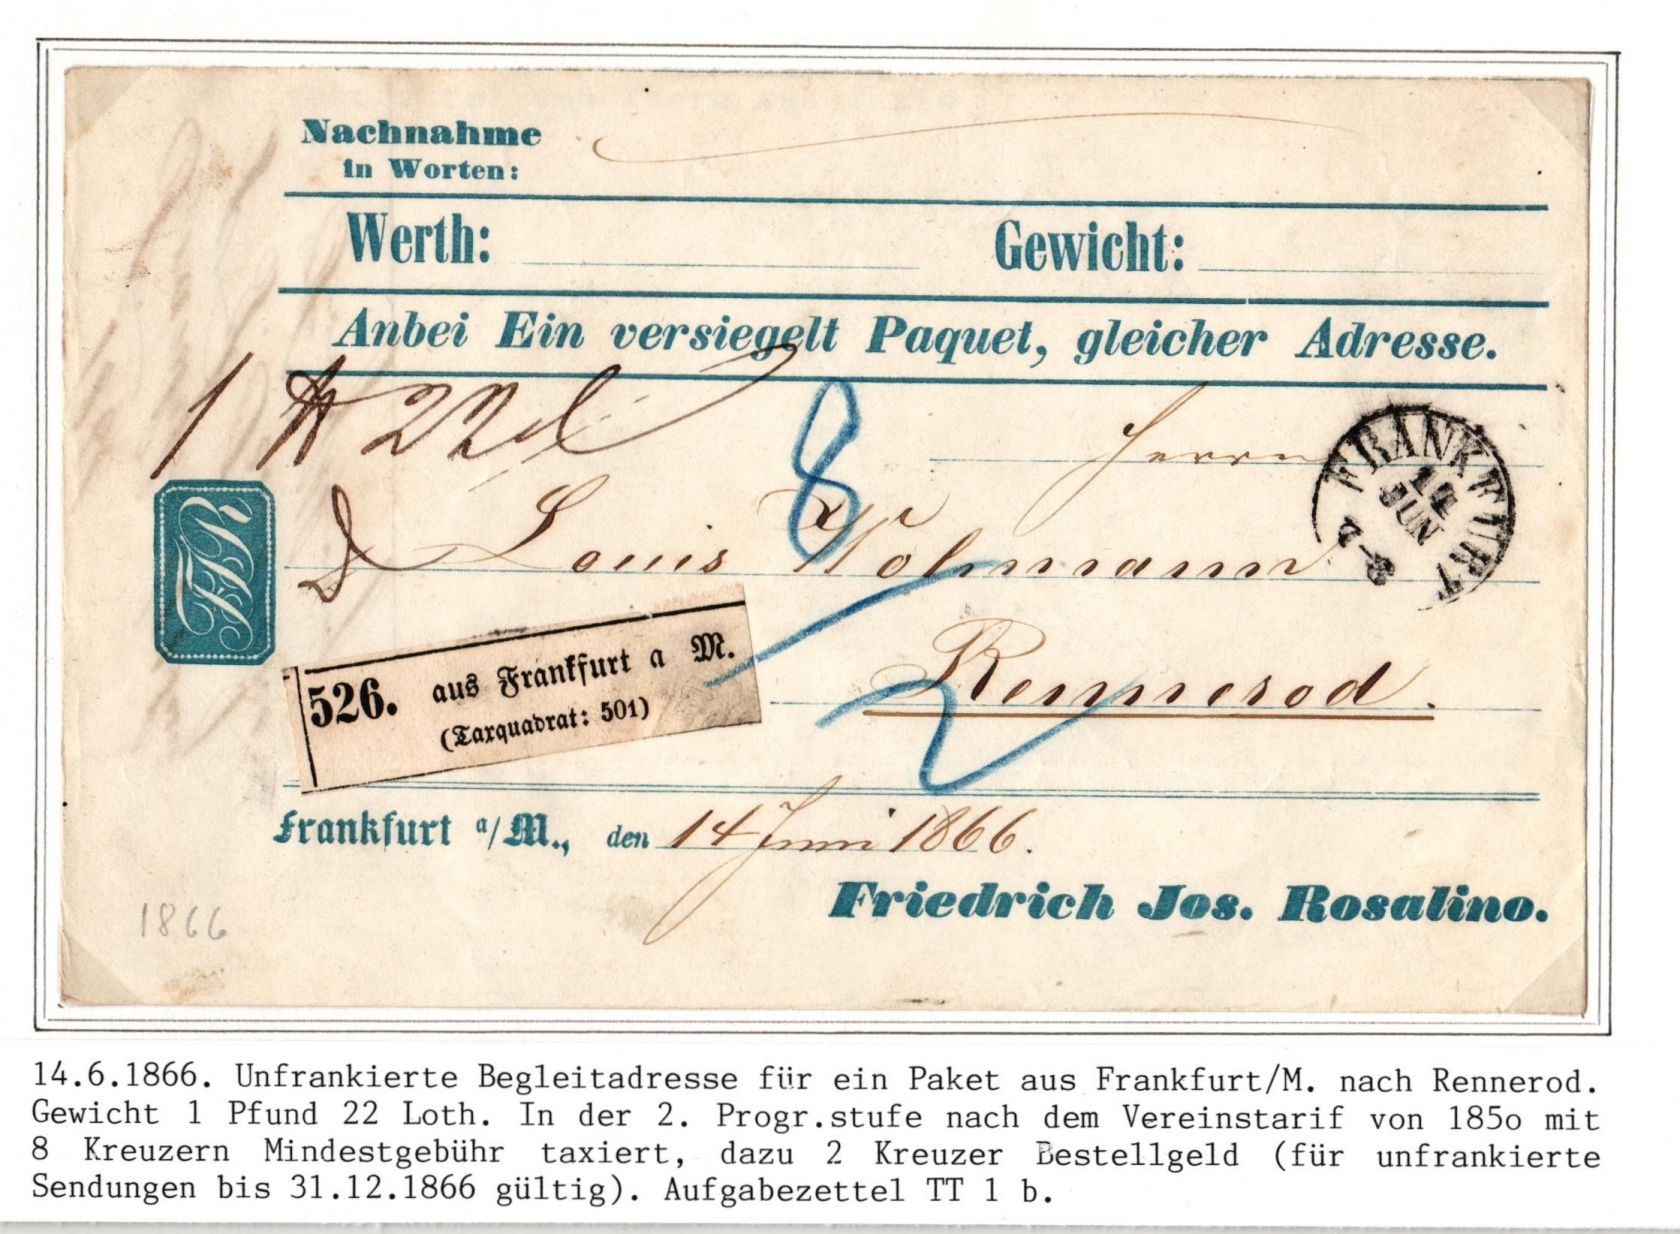 Nachnahme
in Worten:
Werth: Gewicht:
Anbei Ein versiegelt Paquet, gleicher Adresse.
1 ℔ 22 l
8
Herrn
FRANKFURT
14
JUN
FJR
Louis Wohmann
526. aus Frankfurt a M.
(Taxquadrat: 501)
Rennerod.
2
Frankfurt a/M., den 14 Juni 1866.
Friedrich Jos. Rosalino.
1866
14.6.1866. Unfrankierte Begleitadresse für ein Paket aus Frankfurt/M. nach Rennerod.
Gewicht 1 Pfund 22 Loth. In der 2. Progr.stufe nach dem Vereinstarif von 185o mit
8 Kreuzern Mindestgebühr taxiert, dazu 2 Kreuzer Bestellgeld (für unfrankierte
Sendungen bis 31.12.1866 gültig). Aufgabezettel TT 1 b.